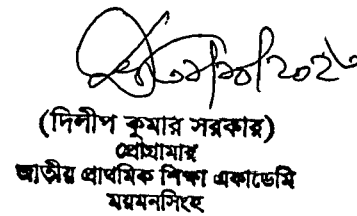 (দিলীপ কুমার সরকার)
প্রোগ্রামার
জাতীয় প্রাথমিক শিক্ষা একাডেমি
ময়মনসিংহ